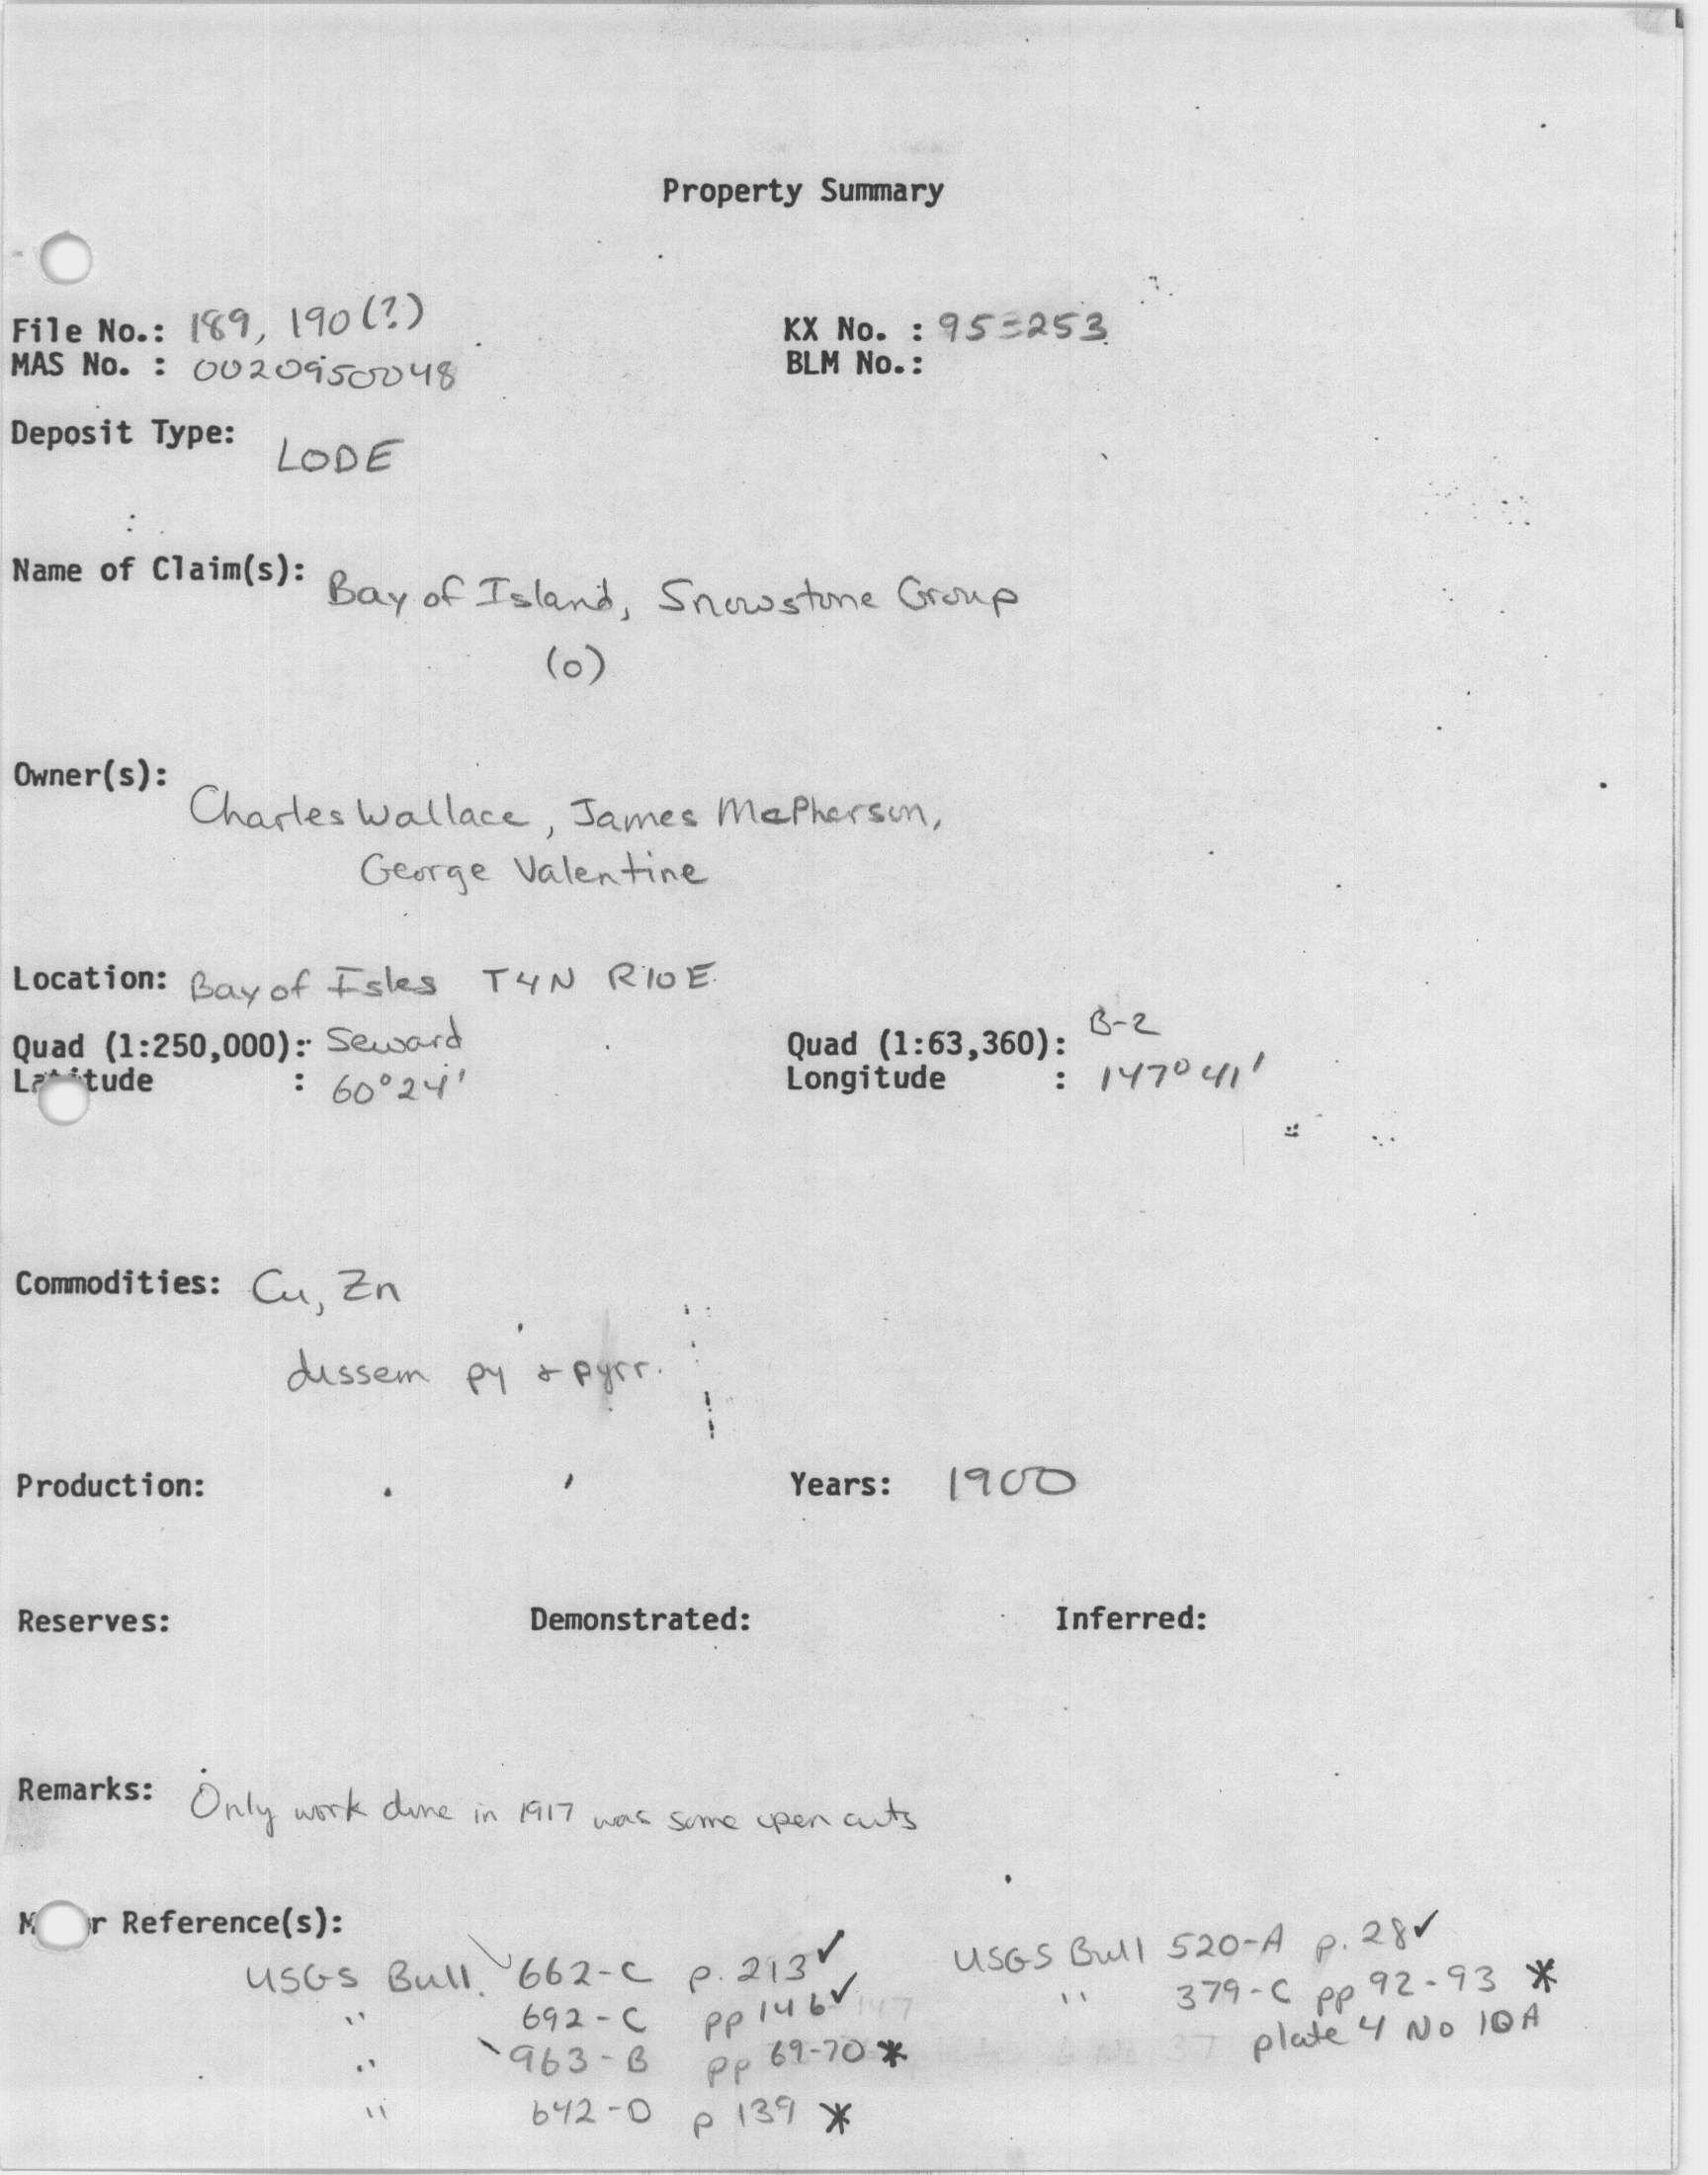 Property Summary
File No.: 189, 190 (?) KX No. : 95-253
MAS No. : 0020950048 BLM No.:
Deposit Type: LODE
Name of Claim(s): Bay of Island, Snowstone Group
(o)
Owner(s): Charles Wallace, James McPherson,
George Valentine
Location: Bay of Isles T4N R10E
Quad (1:250,000): Seward Quad (1:63,360): B-2
Latitude : 60°24' Longitude : 147°41'
Commodities: Cu, Zn
dissem py & pyrr.
Production: Years: 1900
Reserves: Demonstrated: Inferred:
Remarks: Only work done in 1917 was some open cuts
Major Reference(s):
USGS Bull. 662-C p. 213 ✓ USGS Bull 520-A p. 28 ✓
" 692-C pp 146 ✓ " 379-C pp 92-93 *
" 963-B pp 69-70 * plate 4 No 10A
" 642-D p 139 *